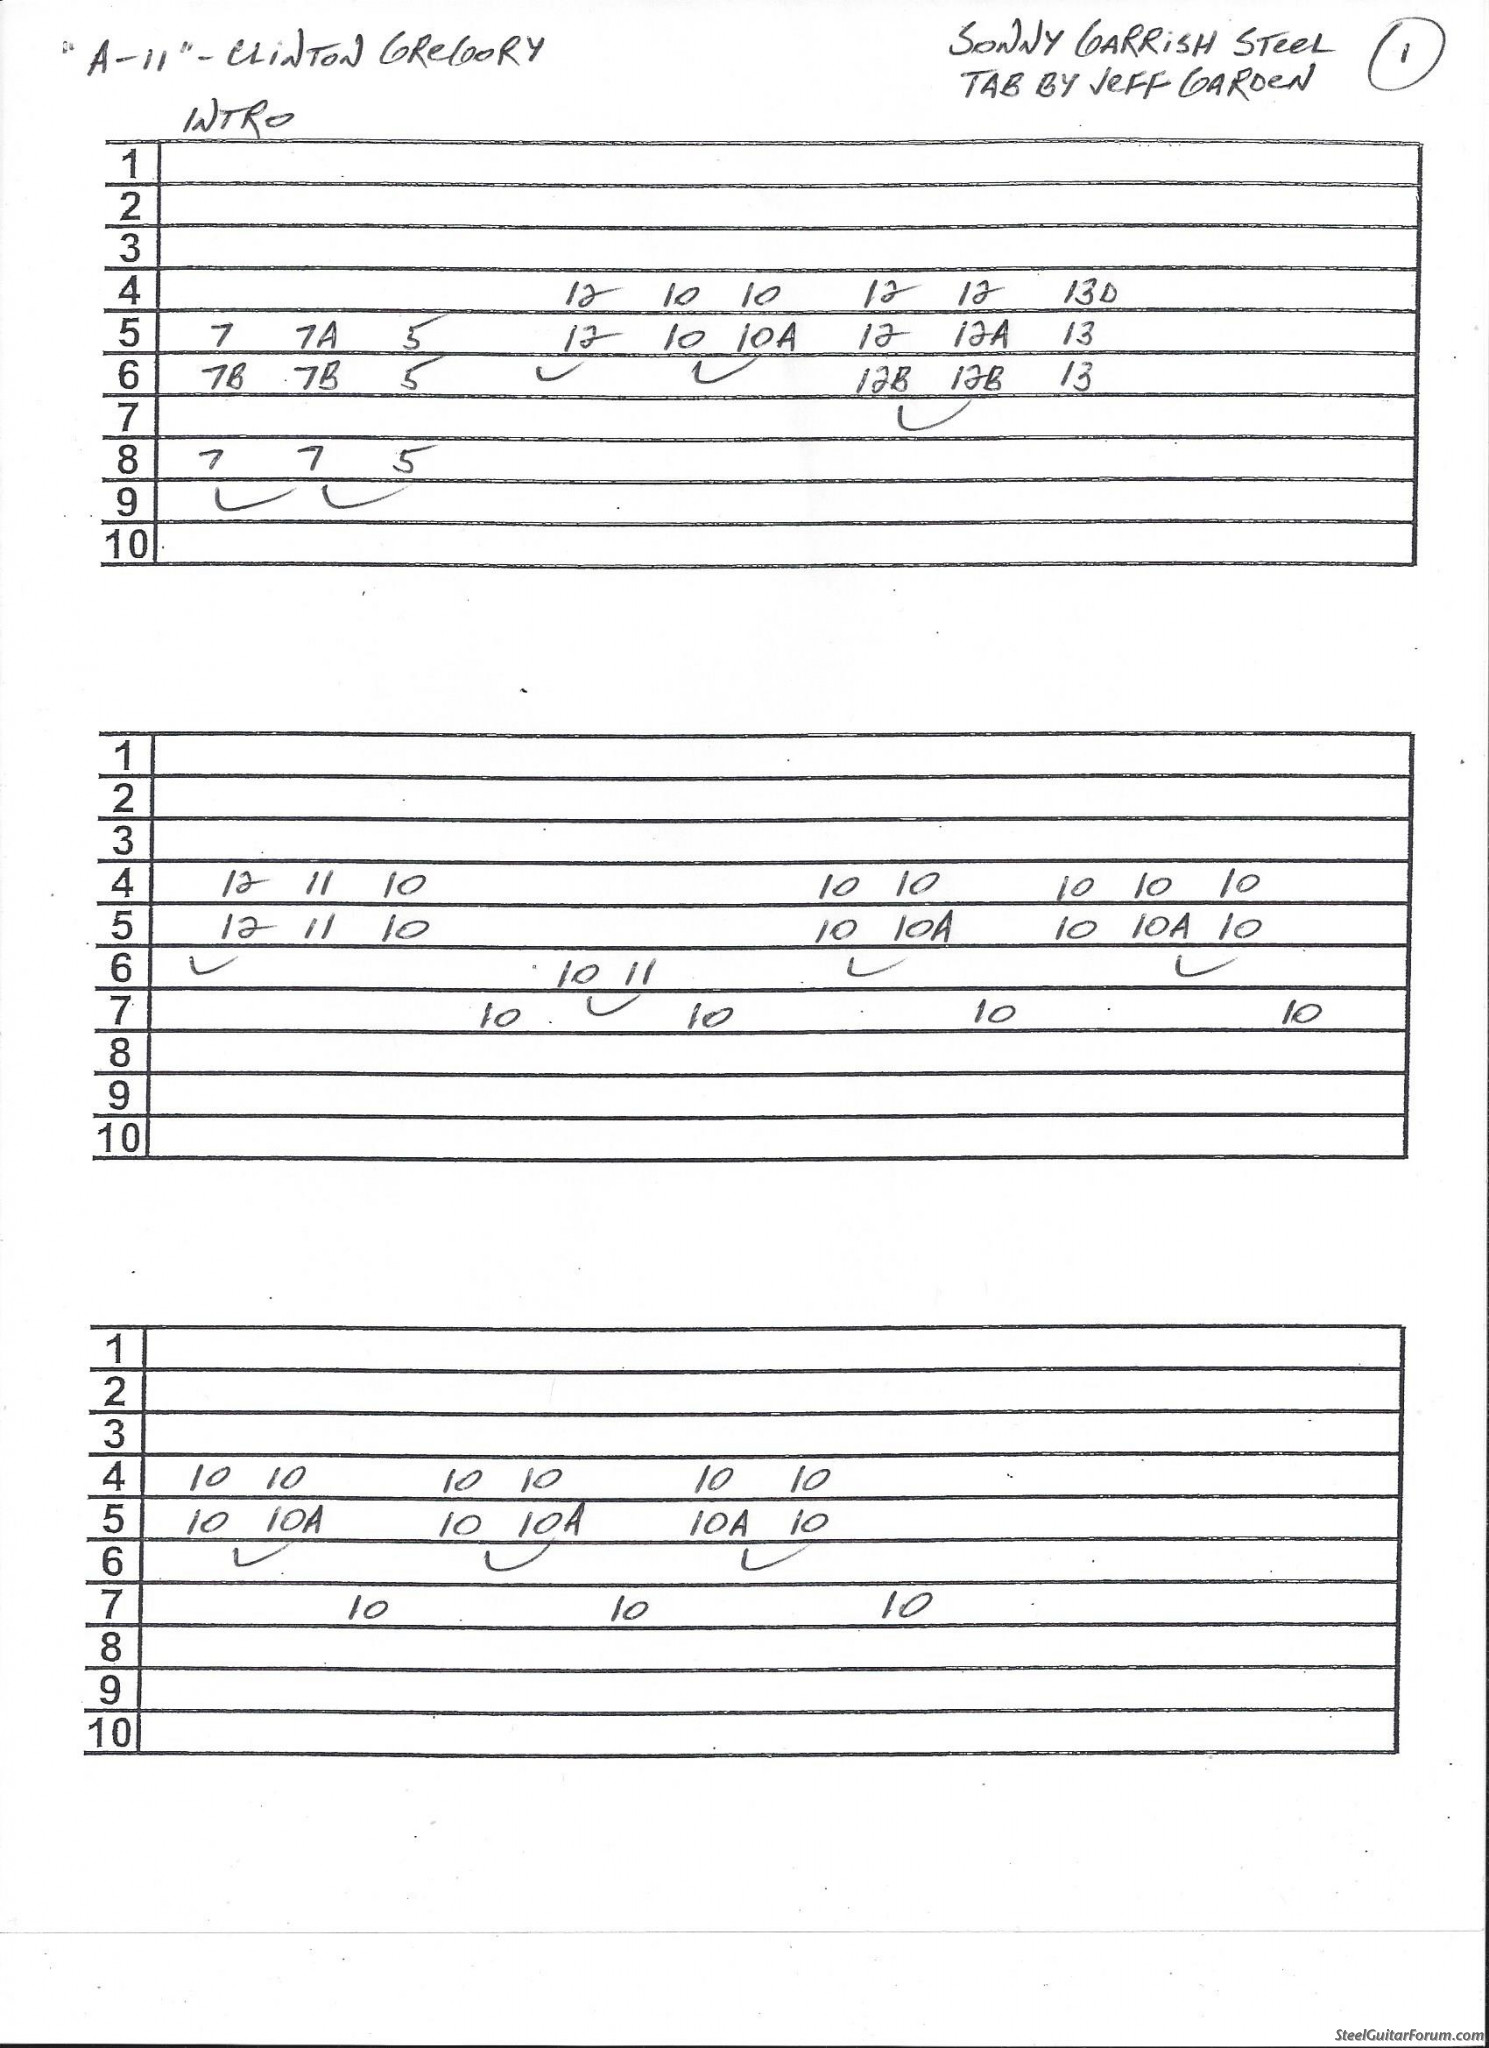 "A-11" - CLINTON GREGORY
SONNY GARRISH STEEL
TAB BY JEFF GARDEN
1
INTRO
1
2
3
4 12 10 10 12 12 13D
5 7 7A 5 12 10 10A 12 12A 13
6 7B 7B 5 12B 12B 13
7
8 7 7 5
9
10
1
2
3
4 12 11 10 10 10 10 10 10
5 12 11 10 10 10A 10 10A 10
6 10 11
7 10 10 10 10
8
9
10
1
2
3
4 10 10 10 10 10 10
5 10 10A 10 10A 10A 10
6
7 10 10 10
8
9
10
SteelGuitarForum.com